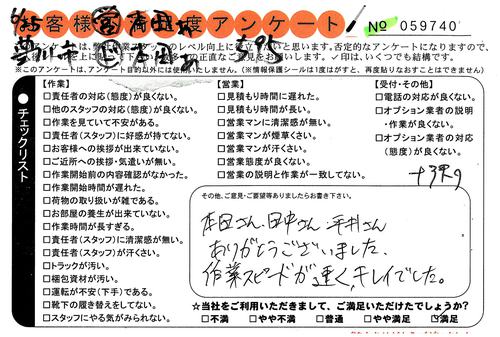 お客様満足度アンケート
No 059740
※このアンケートは、アンケート目的以外には使用いたしません。(※情報保護シールは1度がすと、再度貼りなおすことはできません)
チェックリスト
【作業】
□責任者の対応(態度)が良くない。
□他のスタッフの対応(態度)が良くない。
□作業を見ていて不安がある。
□責任者(スタッフ)に好感が持てない。
□お客様への挨拶が出来ていない。
□ご近所への挨拶・気遣いが無い。
□作業開始前の内容確認がなかった。
□作業開始時間が遅れた。
□荷物の取り扱いが雑である。
□お部屋の養生が出来ていない。
□作業時間が長すぎる。
□責任者(スタッフ)に清潔感が無い。
□責任者(スタッフ)が汗くさい。
□トラックが汚い。
□梱包資材が汚い。
□運転が不安(下手)である。
□靴下の履き替えをしてない。
□スタッフにやる気がみられない。
【営業】
□見積もり時間に遅れた。
□見積もり時間が長い。
□営業マンに清潔感が無い。
□営業マンが煙草くさい。
□営業マンが汗くさい。
□営業態度が良くない。
□営業の説明と作業が一致してない。
【受付・その他】
□電話の対応が良くない。
□オプション業者の説明
・作業が良くない。
□オプション業者の対応
(態度)が良くない。
その他、ご意見・ご要望等ありましたらお書き下さい。
本田さん、田中さん、平井さん
ありがとうございました、
作業スピードが速く、キレイでした。
☆当社をご利用いただきまして、ご満足いただけたでしょうか?
□不満 □やや不満 □普通 □やや満足 ☑満足